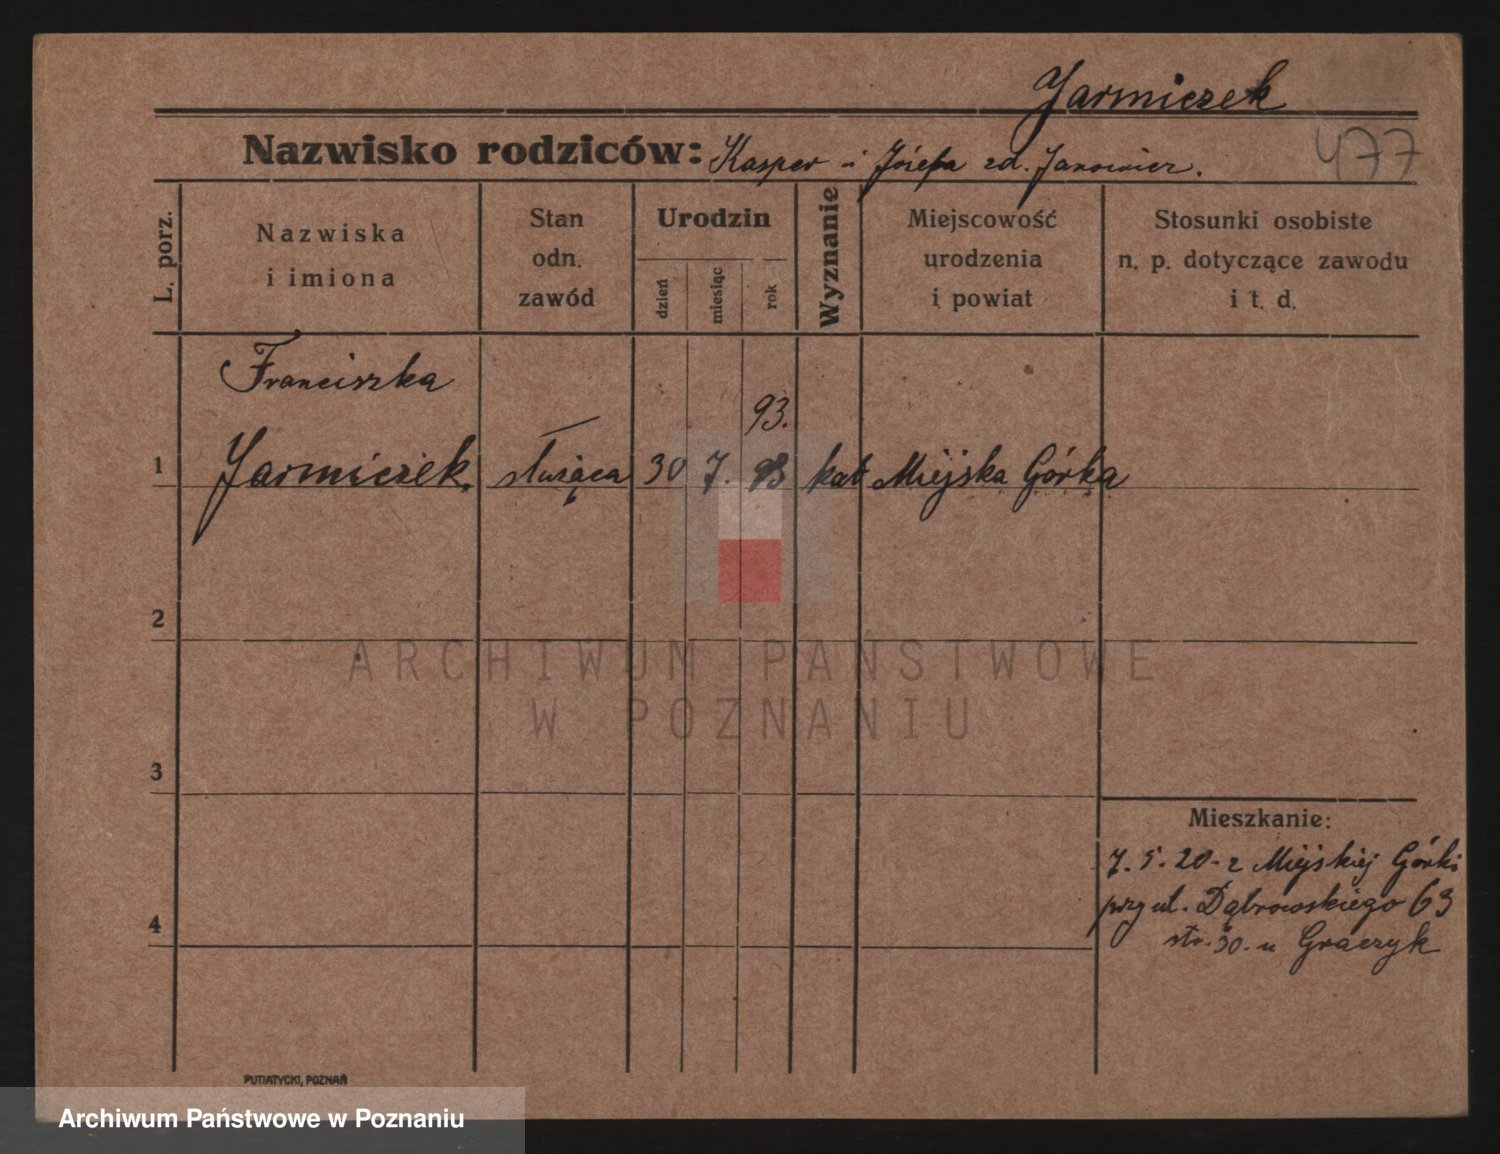 Jarmiczek
Nazwisko rodziców: Kasper i Józefa zd. Janowicz.
477
L. porz.
Nazwiska
i imiona
Stan
odn.
zawód
Urodzin
dzień
miesiąc
rok
Wyznanie
Miejscowość
urodzenia
i powiat
Stosunki osobiste
n. p. dotyczące zawodu
i t. d.
Franciszka
93.
1 Jarmiczek. służąca 30 7. 93 kat Miejska Górka
2
ARCHIWUM PAŃSTWOWE
W POZNANIU
3
Mieszkanie:
7. 5. 20. z Miejskiej Górki
przy ul. Dąbrowskiego 63
4
str. 30. u Graczyk
PUTIATYCKI, POZNAŃ
Archiwum Państwowe w Poznaniu